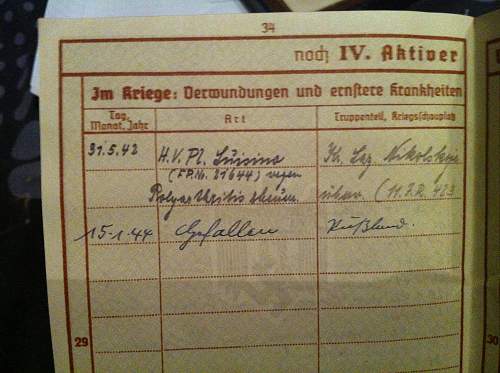 34
noch IV. Aktiver
Im Kriege: Verwundungen und ernstere Krankheiten
Tag, Monat, Jahr
Art
Truppenteil, Kriegsschauplatz
31.5.42 H.V.Pl. Kr. Laz. Nikolskoje
(F.P.Nr. 21644) wegen
Polyarthritis rheum.
15.1.44 Gefallen Rußland.
29
30